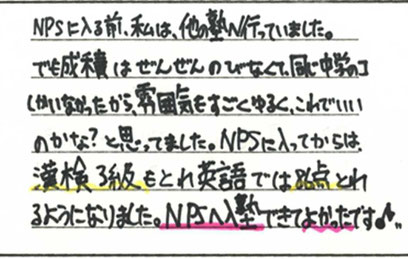 NPSに入る前、私は、他の塾へ行っていました。
でも成積はぜんぜんのびなくて、同じ中学のコ
しかいなかったから、雰囲気もすごくゆるく、これでいい
のかな?と思ってました。NPSに入ってからは、
漢検3級もとれ英語では 点とれ
るようになりました。NPSへ入塾できてよかったです♪